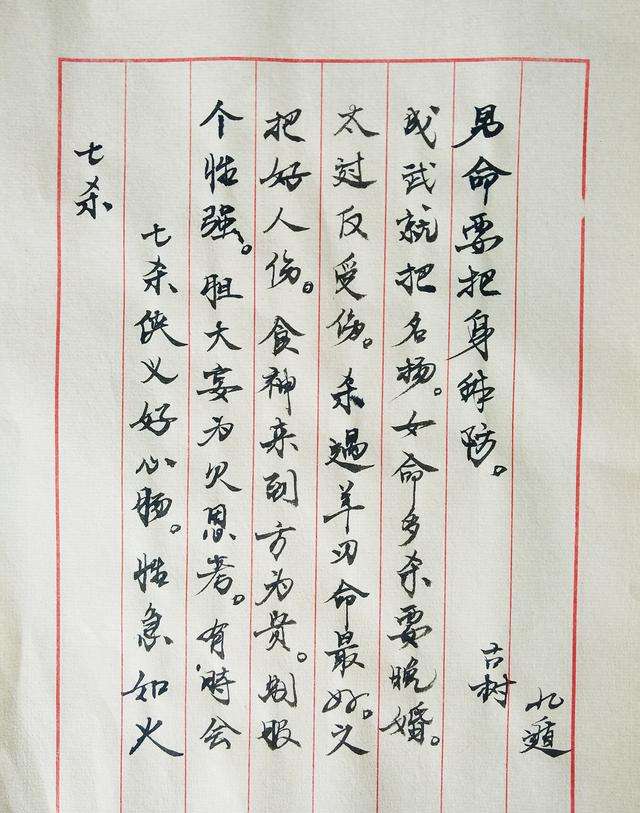 七杀
七杀侠义好心肠。性急如火
个性强。胆大妄为欠思考。有時会
把好人伤。食神来到方为贵。制服
太过反受伤。杀遇羊刃命最好。文
成武就把名扬。女命多杀要晚婚。
男命要把身体防。
古树
九遁